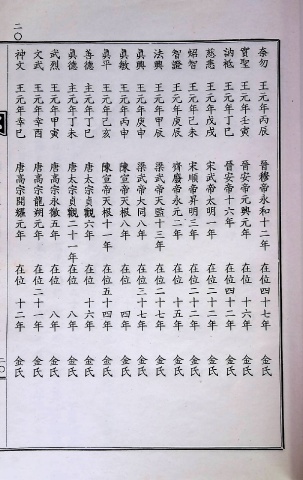 奈勿 王元年丙辰 晉穆帝永和十二年 在位四十七年 金氏
實聖 王元年壬寅 晉安帝元興元年 在位 十六年 金氏
訥祗 王元年丁巳 晉安帝十六年 在位四十二年 金氏
慈悲 王元年戊戌 宋武帝太明一年 在位二十二年 金氏
炤智 王元年己未 宋順帝昇明三年 在位二十二年 金氏
智證 王元年庚辰 齊廢帝永元二年 在位 十五年 金氏
法興 王元年甲辰 梁武帝天監十三年 在位二十七年 金氏
眞興 王元年庚申 梁武帝大同八年 在位三十七年 金氏
眞敏 王元年丙申 陳宣帝天根八年 在位 四年 金氏
眞平 王元年己亥 陳宣帝天根十一年 在位五十四年 金氏
善德 主元年丁巳 唐太宗貞觀六年 在位 十六年 金氏
眞德 主元年丁未 唐太宗貞觀二十一年 在位 八年 金氏
武烈 王元年甲寅 唐高宗永徽五年 在位 八年 金氏
文武 王元年辛酉 唐高宗龍朔元年 在位二十一年 金氏
神文 王元年辛巳 唐高宗開耀元年 在位 十二年 金氏
二〇